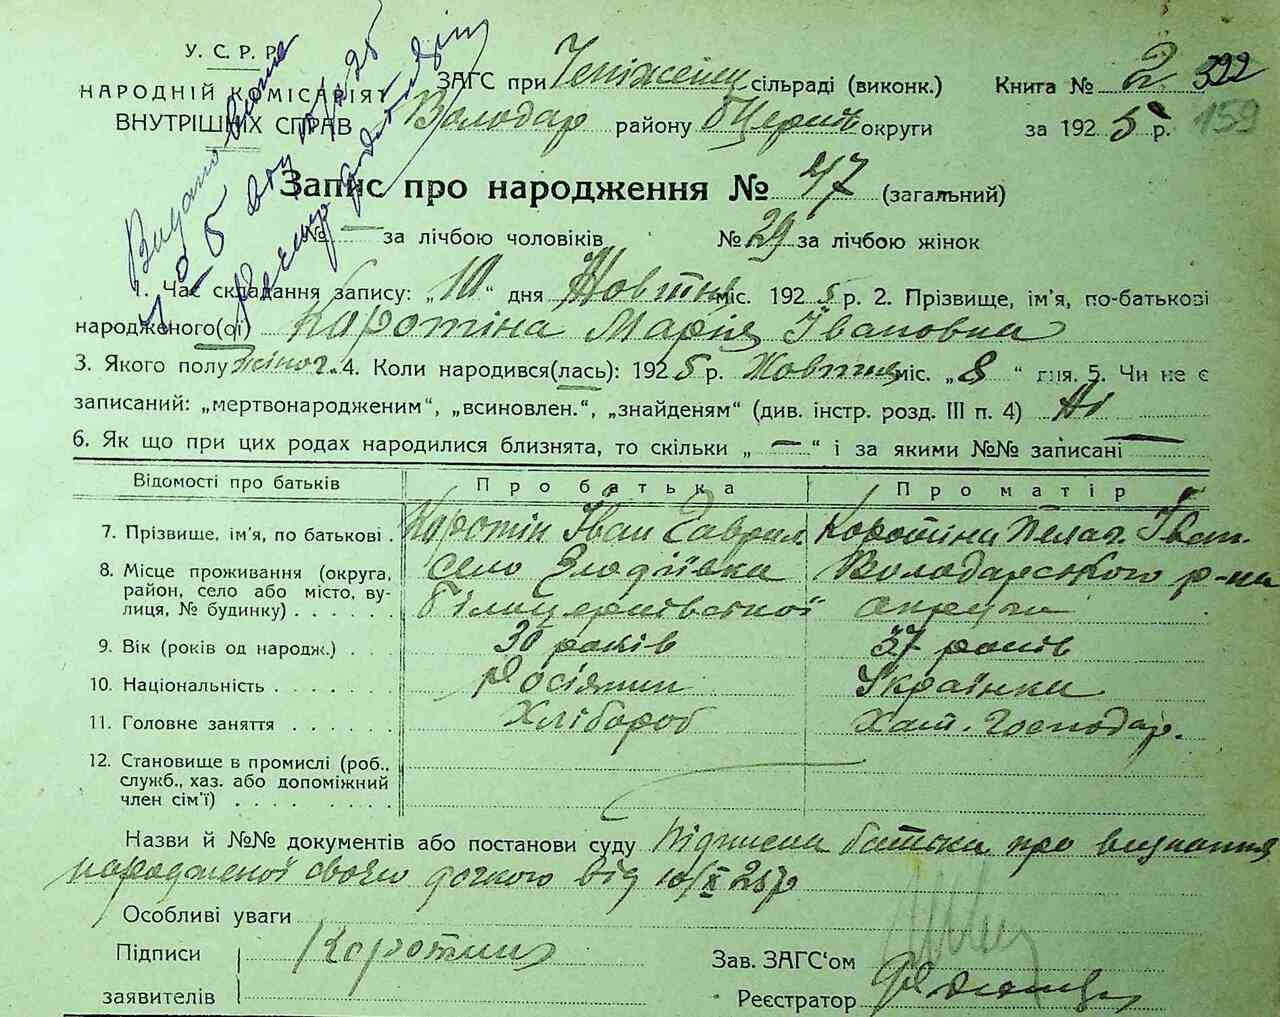 У. С. Р. Р.
НАРОДНІЙ КОМІСАРІЯТ
ВНУТРІШНІХ СПРАВ
ЗАГС при сільраді (виконк.)
Володар району БЦерків округи
Книга № 2 322
за 1925 р. 159
Видано
Запис про народження № 47 (загальний)
№ — за лічбою чоловіків № 29 за лічбою жінок
1. Час складання запису: „10“ дня Жовтня міс. 1925 р. 2. Прізвище, ім'я, по-батькові
народженого(ої) Коротіна Марія Івановна
3. Якого полу жіноч. 4. Коли народився(лась): 1925 р. Жовтня міс. „8“ дня. 5. Чи не є
записаний: „мертвонародженим“, „всиновлен.“, „знайденям“ (див. інстр. розд. III п. 4) Ні
6. Як що при цих родах народилися близнята, то скільки „—“ і за якими №№ записані —
Відомості про батьків Про батька Про матір
7. Прізвище, ім'я, по батькові . Коротін Іван Гаврил. Коротіна Пелаг. Іван.
8. Місце проживання (округа, район, село або місто, вулиця, № будинку) . . . . . село Злодіївка Володарського р-на
Білоцерківської округи
9. Вік (років од народж.) . . . 30 років 37 років
10. Національність . . . . . . . Росіянин Українка
11. Головне заняття . . . . . . Хлібороб Хат. Господар.
12. Становище в промислі (роб., служб., хаз. або допоміжний член сім'ї) . . . . . . . .
Назви й №№ документів або постанови суду Підписка батька про визнання
народженої своєю дочкою від 10/X 25 р
Особливі уваги
Підписи Коротин
заявителів
Зав. ЗАГС'ом
Реєстратор